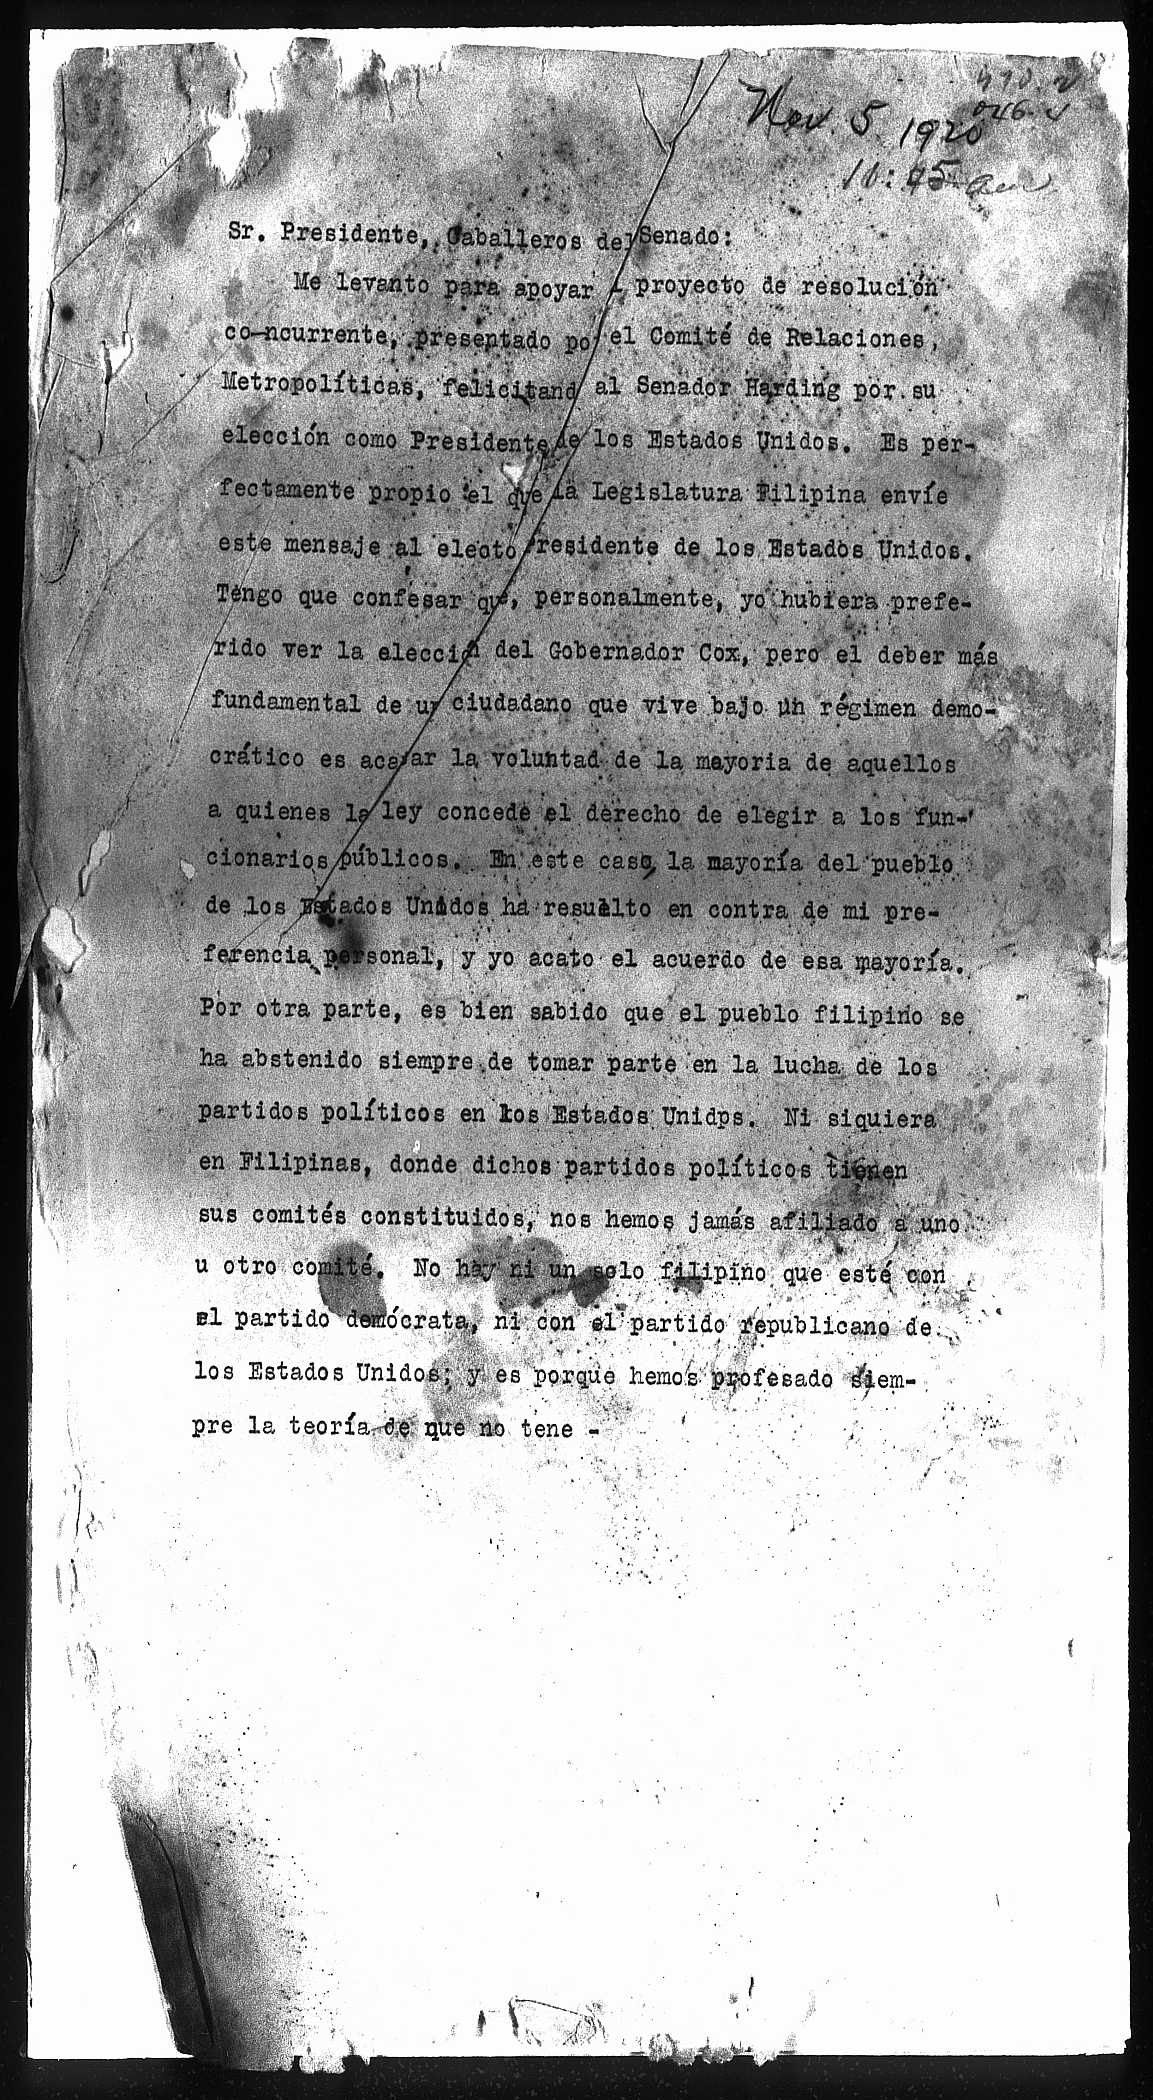 Nov. 5 1920
046.
Sr. Presidente, Caballeros del Senado:
Me levanto para apoyar proyecto de resolución
co-ncurrente, presentado por el Comité de Relaciones,
Metropolíticas, felicitand al Senador Harding por su
elección como Presidente de los Estados Unidos. Es per-
fectamente propio el que la Legislatura Filipina envíe
este mensaje al electo Presidente de los Estados Unidos.
Tengo que confesar que, personalmente, yo hubiera prefe-
rido ver la elección del Gobernador Cox, pero el deber más
fundamental de un ciudadano que vive bajo un régimen demo-
crático es acatar la voluntad de la mayoria de aquellos
a quienes la ley concede el derecho de elegir a los fun-
cionarios públicos. En este caso, la mayoría del pueblo
de los Estados Unidos ha resuelto en contra de mi pre-
ferencia personal, y yo acato el acuerdo de esa mayoría.
Por otra parte, es bien sabido que el pueblo filipino se
ha abstenido siempre de tomar parte en la lucha de los
partidos políticos en los Estados Unidps. Ni siquiera
en Filipinas, donde dichos partidos políticos tienen
sus comités constituidos, nos hemos jamás afiliado a uno
u otro comité. No hay ni un solo filipino que esté con
el partido demócrata, ni con el partido republicano de
los Estados Unidos; y es porque hemos profesado siem-
pre la teoría de que no tene -